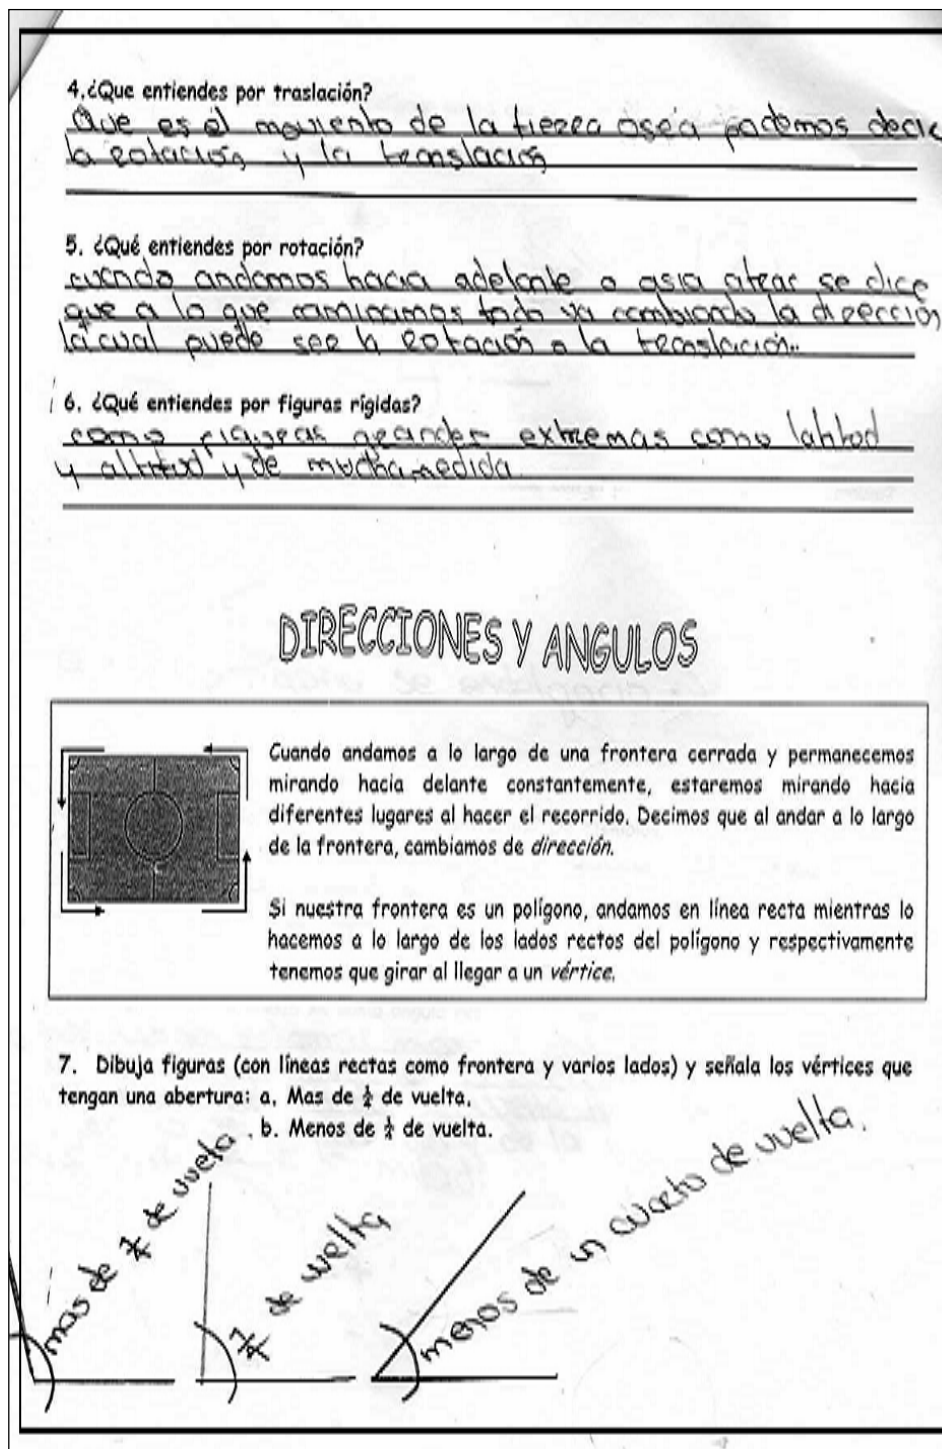 4.¿Que entiendes por traslación?
Que es el moviento de la tierra osea podemos decir
la rotación y la translación
5. ¿Qué entiendes por rotación?
cuando andamos hacia adelante o asia atras se dice
que a lo que caminamos todo va cambiando la dirección
la cual puede ser la rotación o la translación..
6. ¿Qué entiendes por figuras rígidas?
como figuras grandes extremas como latitud
y altitud y de mucha medida
DIRECCIONES Y ANGULOS
Cuando andamos a lo largo de una frontera cerrada y permanecemos
mirando hacia delante constantemente, estaremos mirando hacia
diferentes lugares al hacer el recorrido. Decimos que al andar a lo largo
de la frontera, cambiamos de dirección.
Si nuestra frontera es un polígono, andamos en línea recta mientras lo
hacemos a lo largo de los lados rectos del polígono y respectivamente
tenemos que girar al llegar a un vértice.
7. Dibuja figuras (con líneas rectas como frontera y varios lados) y señala los vértices que
tengan una abertura: a. Mas de ¼ de vuelta.
b. Menos de ¼ de vuelta.
mas de ¼ de vuelta
¼ de vuelta
menos de un cuarto de vuelta.